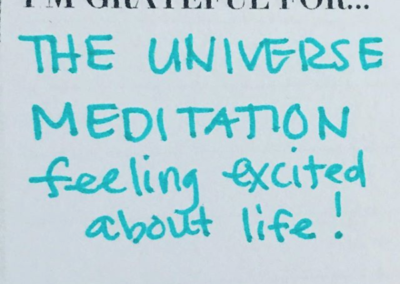 I'M GRATEFUL FOR...
THE UNIVERSE
MEDITATION
feeling excited
about life!